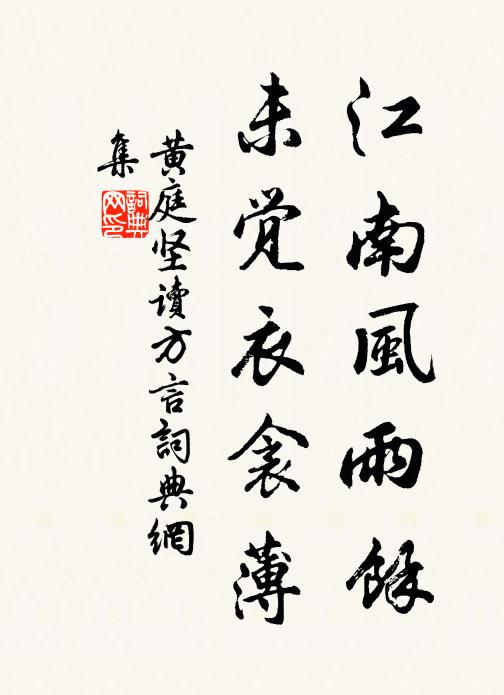 江南風雨餘
未觉衣衾薄
黄庭坚讀方言詞典網
集
詞典
网印